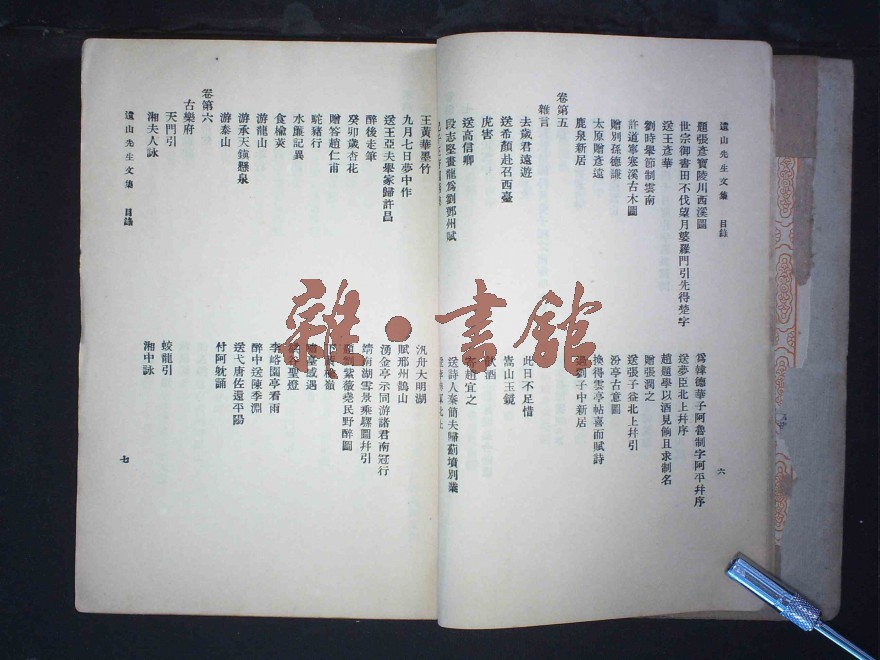 遺山先生文集 目錄 六
題張彥寶陵川西溪圖 爲韓德華子阿魯制字阿平幷序
世宗御書田不伐望月婆羅門引先得楚字 送夢臣北上幷序
送王彥華 趙題學以酒見餉且求制名
劉時舉節制雲南 贈張潤之
許道寧寒溪古木圖 送張子益北上幷引
贈別孫德謙 汾亭古意圖
太原贈彥遠 換得雲亭帖喜而賦詩
鹿泉新居 劉子中新居
卷第五
雜言
去歲君遠遊 此日不足惜
送希顏赴召西臺 嵩山玉鏡
虎害 飲酒
送高信卿 寄趙宜之
段志堅畫龍爲劉鄧州賦 送詩人秦簡夫歸蘇墳別業
王黃華墨竹 汎舟大明湖
九月七日夢中作 賦邢州鵲山
送王亞夫舉家歸許昌 湧金亭示同游諸君南冠行
醉後走筆 靖南湖雪景乘騾圖幷引
癸卯歲杏花 劉紫薇堯民野醉圖
贈答趙仁甫 嶺
駝豬行 遇
水簾記異 聖燈
食楡莢 李峪園亭看雨
游龍山 醉中送陳季淵
游承天鎮懸泉 送弋唐佐還平陽
游泰山 付阿躭誦
卷第六
古樂府
天門引 蛟龍引
湘夫人詠 湘中詠
遺山先生文集 目錄 七
雜·書館